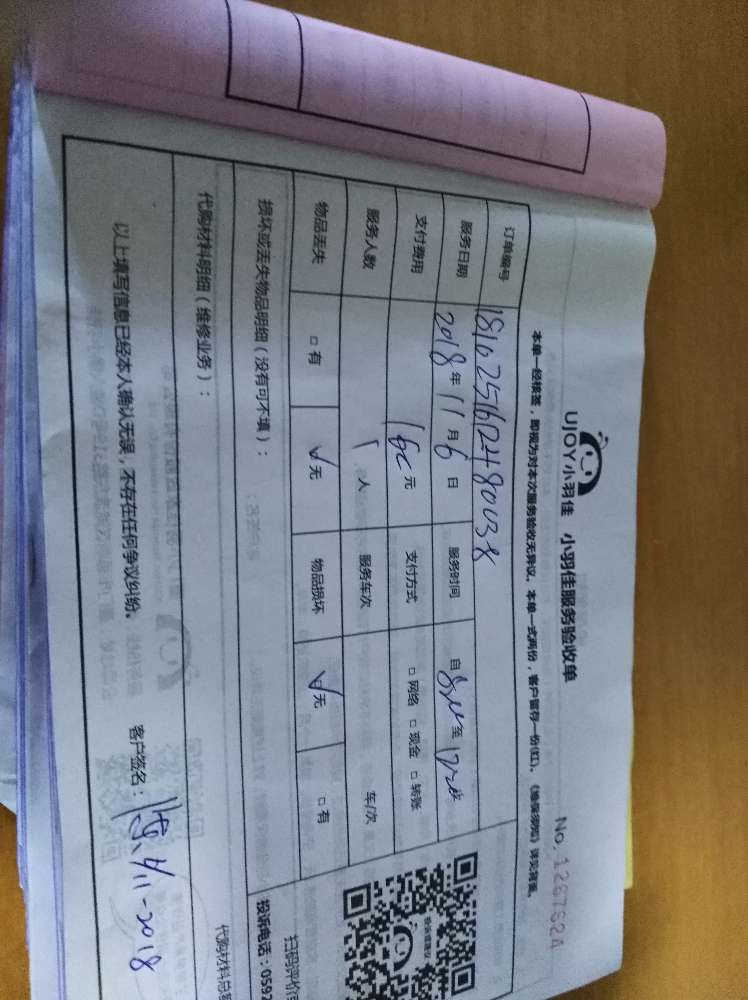 UJOY小羽佳 小羽佳服务验收单
No. 1267624
本单一经核签，即视为对本次服务验收无异议。本单一式两份，客户留存一份(红)。
订单编号 1810251612480038
服务日期 2018年11月6日 服务时间 自 至
支付费用 元 支付方式 □网络 □现金 □转账
服务人数 1人 服务车次 车/次
物品丢失 □有 √无 物品损坏 √无 □有
损坏或丢失物品明细（没有可不填）：
代购材料明细（维修业务）：
代购材料总
扫码评价
投诉电话：059
以上填写信息已经本人确认无误，不存在任何争议纠纷。
客户签名： 6/11-2018